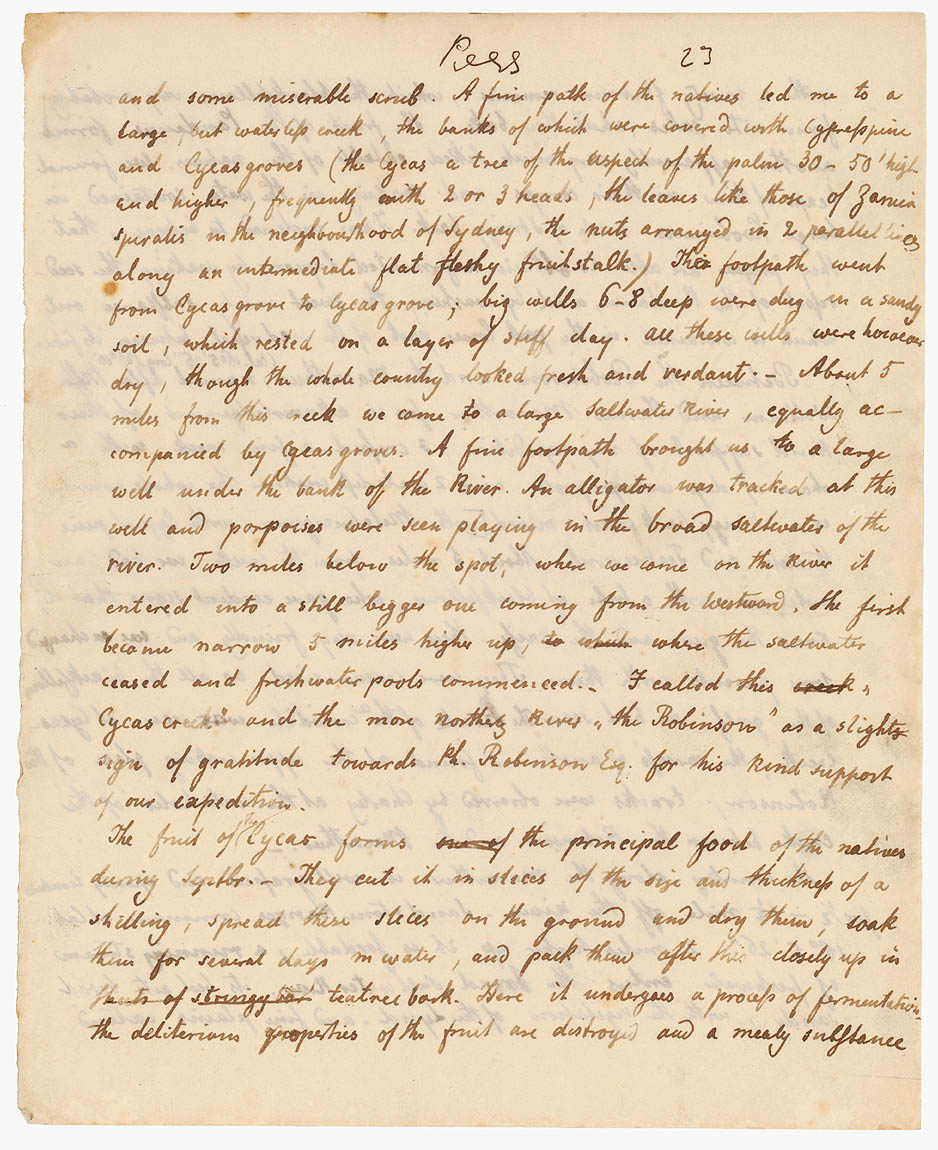 Pess 23
and some miserable scrub. A fine path of the natives led me to a
large, but waterless creek, the banks of which were covered with Cypresspine
and Cycasgroves (the Cycas a tree of the aspect of the palm 30 - 50' high
and higher, frequently with 2 or 3 heads, the leaves like those of Zamia
spiralis in the neighbourhood of Sydney, the nuts arranged in 2 parallel lines
along an intermediate flat fleshy fruitstalk.) This footpath went
from Cycasgrove to Cycasgrove; big wells 6-8 deep were dug in a sandy
soil, which rested on a layer of stiff clay. All these wells were however
dry, though the whole country looked fresh and verdant. - About 5
miles from this creek we came to a large Saltwater River, equally ac-
companied by Cycasgroves. A fine footpath brought us to a large
well under the bank of the River. An alligator was tracked at this
well and porpoises were seen playing in the broad saltwater of the
river. Two miles below the spot, where we came on the River it
entered into a still bigger one coming from the Westward. The first
became narrow 5 miles higher up, to which where the saltwater
ceased and freshwaterpools commenced. - I called this creek „
Cycas creek" and the more northerly River „the Robinson" as a slight
sign of gratitude towards Ph. Robinson Esq. for his kind support
of our expedition.
The fruit of the Cycas forms one of the principal food of the natives
during Septbr. - They cut it in slices of the size and thickness of a
shilling, spread these slices on the ground and dry them, soak
them for several days in water, and pack them after this closely up in
of stringybark teatree bark. Here it undergoes a process of fermentation
the deliterious properties of the fruit are distroyed and a mealy substance